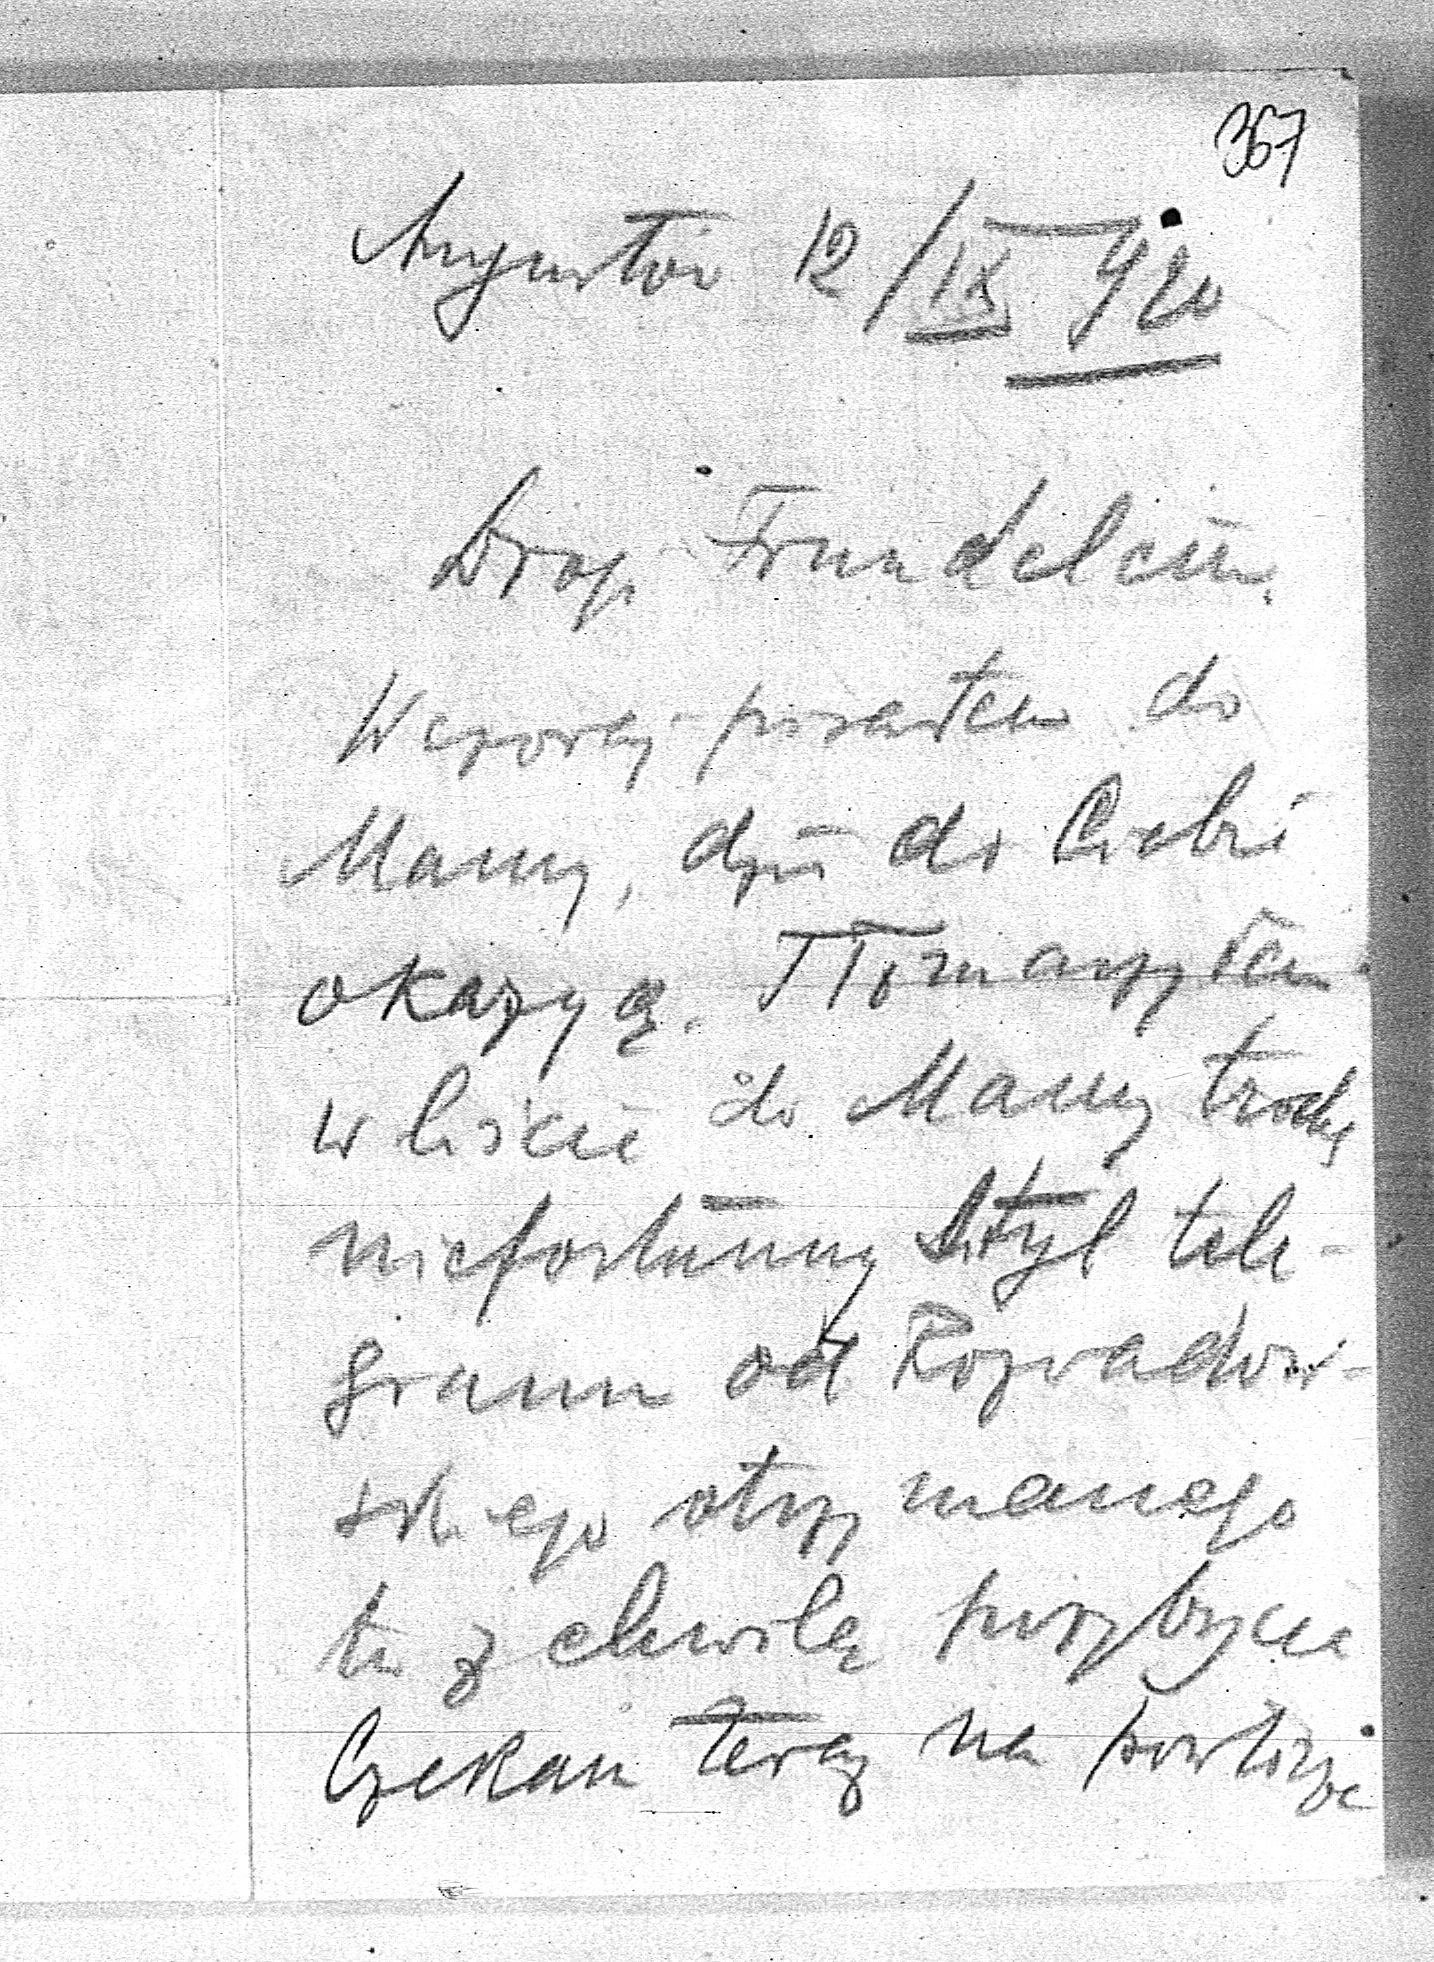 367
Augustów 12/IX 920
Drogi Frundelciu,
Wczoraj pisałem do
Mamy, dziś do Ciebie
okazyą. Tłomaczyłem
w liście do Mamy trochę
niefortunny styl tele-
gramu od Rozwadow-
skiego otrzymanego
tu z chwilą przybycia
Czekam teraz na